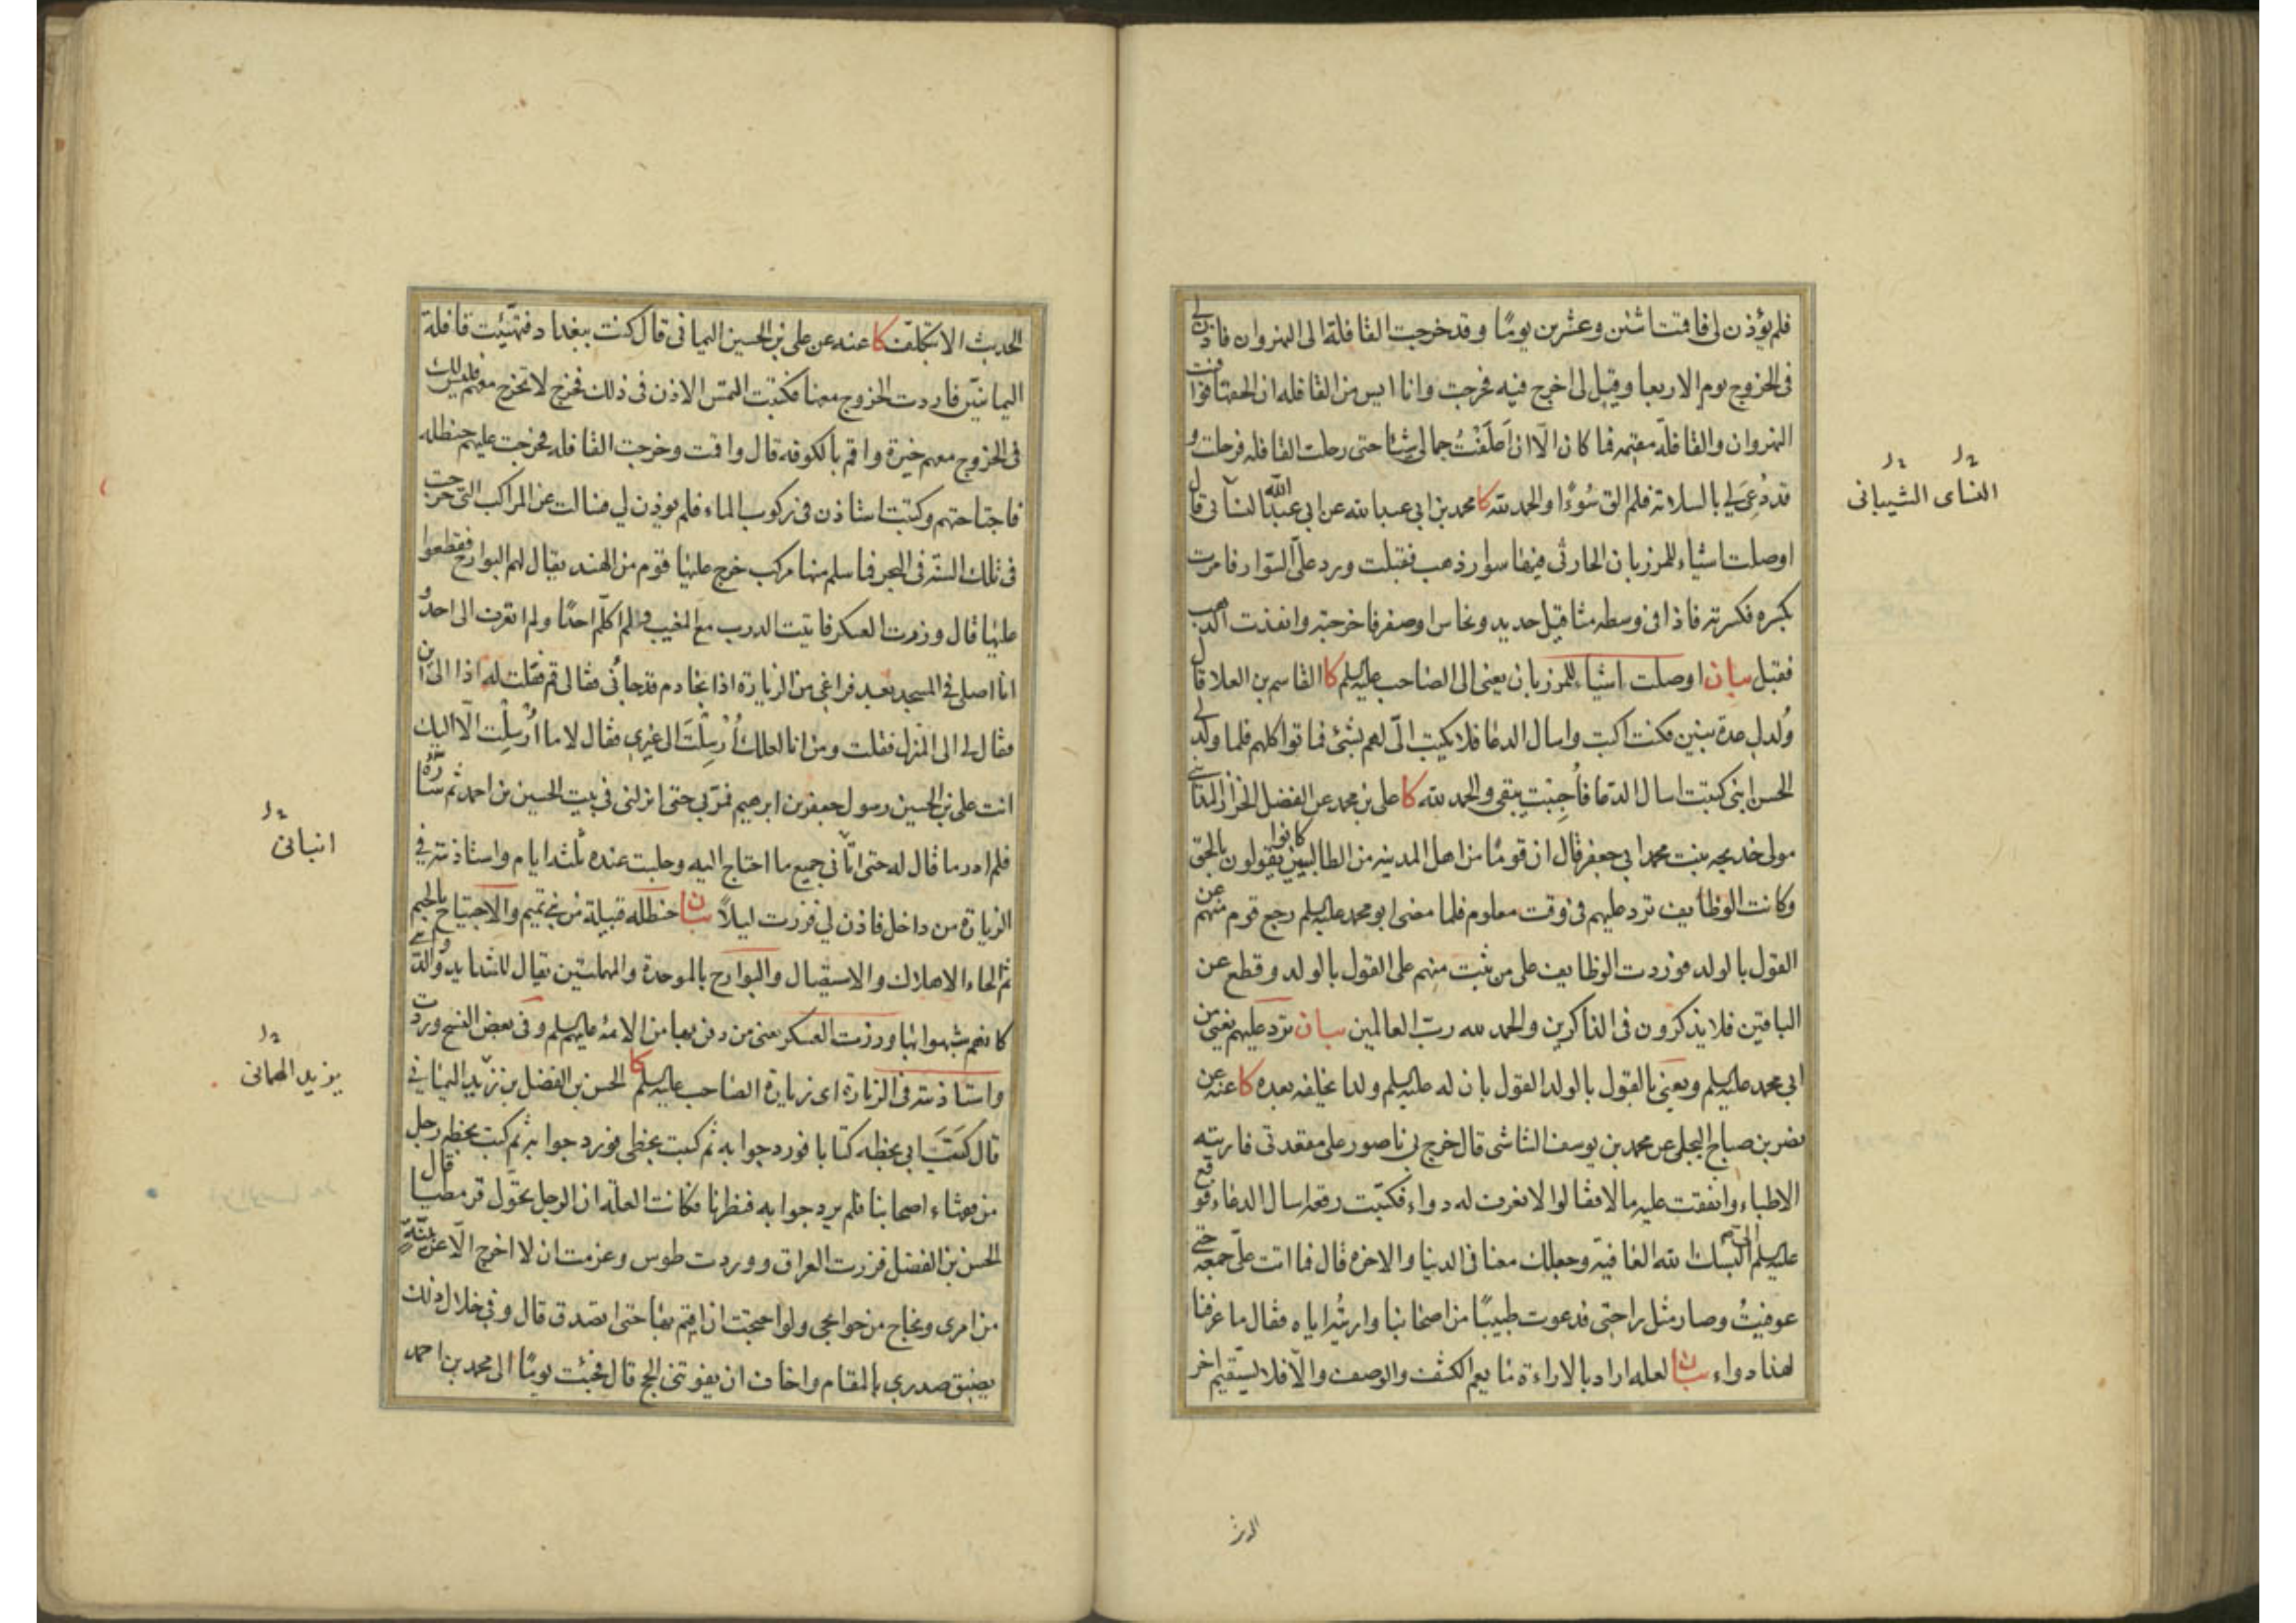 فلم يؤذن لي فاقمت اثنين وعشرين يومًا وقد خرجت القافلة الى النهروان فاذن لي
في الخروج يوم الاربعا وقيل لي اخرج فيه فخرجت وانا ايس من القافله ان الحقها فوافيت
النهروان والقافلة مقيمه فما كان الّا ان اَعلَفْتُ جمالي شيئا حتى رحلت القافله فرحلت و
قد دُعِيَ لي بالسلامة فلم الق سُوءًا والحمد لله كا محمد بن ابي عبدالله عن ابي عبدالله النسائى قال
اوصلت اشياء للمرزبان الحارثى فيها سوار ذهب فقبلت ورد علىّ السّوار فامرت
بكسره فكسرته فاذا في وسطه مثاقيل حديد ونحاس او صفر فاخرجته وانفذت الذهب
فقبل بيان اوصلت اشياء للمرزبان يعنى الى الصاحب عليه السلم كا القاسم بن العلا قال
وُلد لي عدة بنين فكنت اكتب واسال الدعا فلا يكتب الىّ لهم بشئ فماتوا كلهم فلما ولد لي
الحسن ابنى كتبت اسال الدّعا فأُجِبْت يبقى والحمد لله كا على بن محمد عن الفضل الخزاز المدائني
مولى خديجه بنت محمد ابي جعفر قال ان قومًا من اهل المدينه من الطالبيين كانوا يقولون بالحق
وكانت الوظايف ترد عليهم في وقت معلوم فلما مضى ابو محمد عليه السلم رجع قوم منهم عن
القول بالولد فوردت الوظايف على من ثبت منهم على القول بالولد وقطع عن
الباقين فلا يذكرون في الذاكرين والحمد لله ربّ العالمين بيان ترد عليهم يعني من
ابي محمد عليه السلم ويعنى بالقول بالولد القول بان له عليه السلم ولدا يخلفه بعده كا عنه عن
نضر بن صباح البجلى عن محمد بن يوسف الشاشى قال خرج بي ناصور على مقعدتى فاريته
الاطباء وانفقت عليه مالا فقالوا لا نعرف له دواء فكتبت رقعه اسال الدعاء فوقع
عليه السلم الىّ البسك الله العافيه وجعلك معنا في الدنيا والاخره قال فما اتت علىّ جمعه حتى
عوفيتُ وصار مثل راحتى فدعوت طبيبًا من اصحابنا واريتُه اياه فقال ما عرفنا
لهذا دواء بيان لعله اراد بالاراءة ما يعم الكشف والوصف والّا فلا يستقيم اخر
الحديث الا بتكلف كا عنه عن على بن الحسين اليمانى قال كنت ببغداد فتهيئت قافلة
اليمانيّين فاردت الخروج معها فكتبت التمس الاذن في ذلك فخرج لا تخرج معهم فليس لك
في الخروج معهم خيرة واقم بالكوفه قال واقمت وخرجت القافله فخرجت عليهم حنظله
فاجتاحتهم وكتبت استاذن في ركوب الماء فلم يوذن لي فسالت عن المراكب التى خرجت
في تلك السنة في البحر فما سلم منها مركب خرج عليها قوم من الهند يقال لهم البوارح فقطعوا
عليها قال وزرت العسكر فاتيت الدرب مع المغيب ولم اكلّم احدًا ولم اتعرف الى احد و
انا اصلى في المسجد بعد فراغي من الزيارة اذا بخادم قد جاءنى فقال لي قم فقلت له اذا الى اين
فقال لي الى المنزل فقلت ومن انا لعلك اُرْسِلْتَ الى غيري فقال لا ما اُرسِلْت الّا اليك
انت على بن الحسين رسول جعفر بن ابرهيم فمرّ بي حتى انزلنى في بيت الحسين بن احمد ثم سارّه
فلم ادر ما قال له حتى اتاني جميع ما احتاج اليه وجلست عنده ثلثه ايام واستاذنته في
الزيارة من داخل فاذن لي فزرت ليلاً بيان حنظله قبيلة من بني تميم والاجتياح بالجيم
ثم الحاء الاهلاك والاستيصال والبوارح بالموحدة والمهملتين يقال للشدايد والدواهي
كانهم شبهوا بها وزرت العسكر يعنى من دفن بها من الائمة عليهم السلم وفى بعض النسخ وردت
واستاذنته في الزيارة اى زيارة الصاحب عليه السلم كا الحسن بن الفضل بن زيد اليماني
قال كَتَبَ ابي بخطه كتابا فورد جوابه ثم كتبت بخطى فورد جوابه ثم كتب بخطه رجل
من فقهاء اصحابنا فلم يرد جوابه فنظرنا فكانت العلّة ان الرجل تحوّل قرمطيا قال
الحسن بن الفضل فزرت العراق ووردت طوس وعزمت ان لا اخرج الّا عن بيّنة
من امرى ونجاح من حوايجى ولو احتجت ان اقيم بها حتى اتصدق قال وفي خلال ذلك
يضيق صدري بالمقام واخاف ان يفوتنى الحج قال فجئت يومًا الى محمد بن احمد
النساى الشيبانى
انبانى
يزيد الهمانى